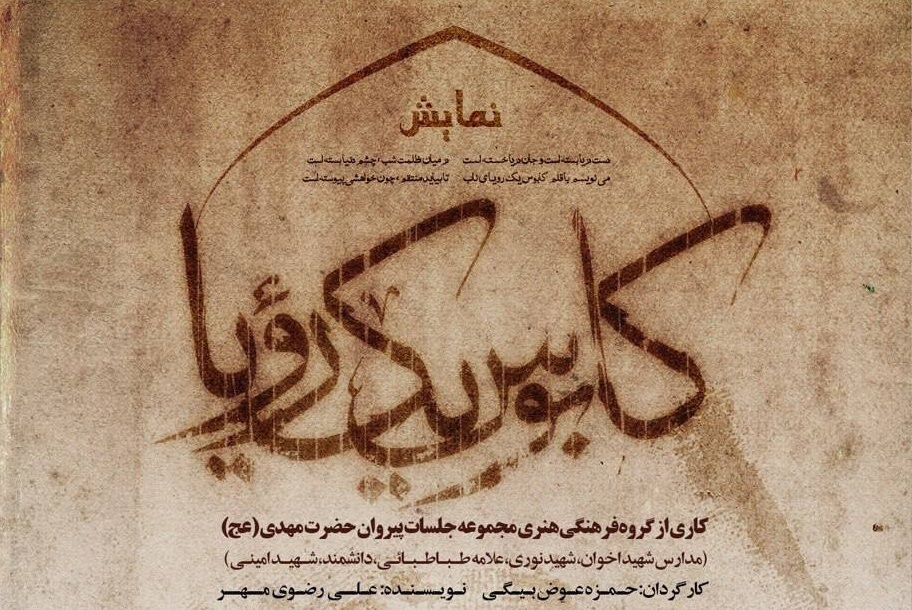 نمایش
دست دریا بسته است و جان دریا خسته است در میان ظلمت شب، چشم دنیا بسته است
می نویسم با قلم کابوس یک رویای ناب تا بیاید منتقم، چون خواهشی پیوسته است
کابوس یک رؤیا
کاری از گروه فرهنگی هنری مجموعه جلسات پیروان حضرت مهدی (عج)
(مدارس شهید اخوان، شهید نوری، علامه طباطبائی، دانشمند، شهید امینی)
کارگردان: حمزه عوض بیگی نویسنده: علی رضوی مهر